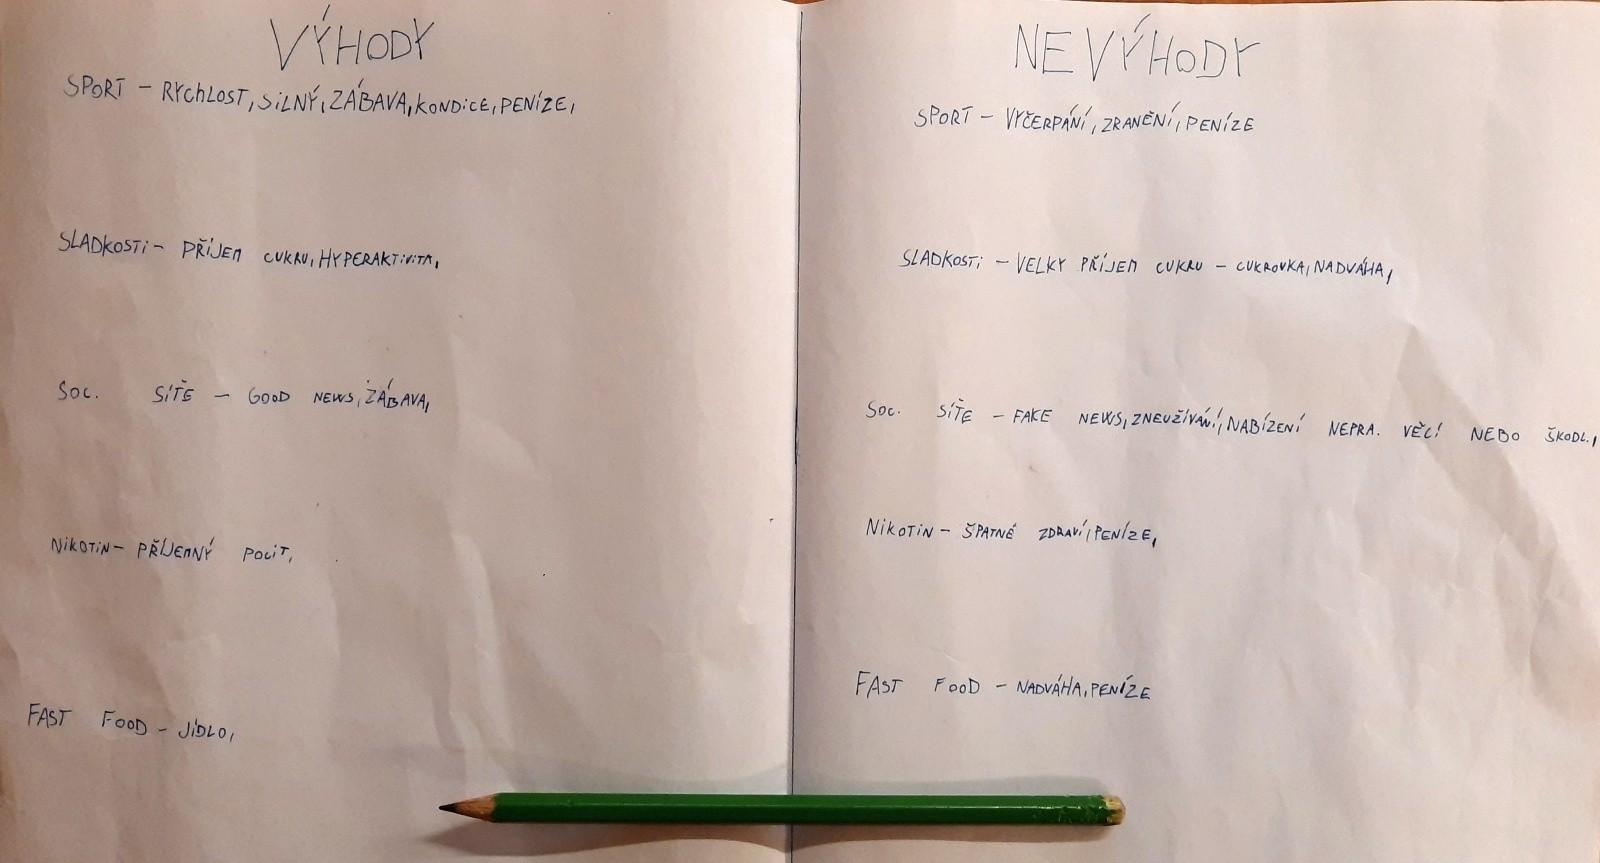 VÝHODY
SPORT – RYCHLOST, SILNÝ, ZÁBAVA, KONDICE, PENÍZE,
SLADKOSTI – PŘÍJEM CUKRU, HYPERAKTIVITA,
SOC. SÍTĚ – GOOD NEWS, ZÁBAVA,
NIKOTIN – PŘÍJEMNÝ POCIT,
FAST FOOD – JÍDLO,
NEVÝHODY
SPORT – VYČERPÁNÍ, ZRANĚNÍ, PENÍZE
SLADKOSTI – VELKY PŘÍJEM CUKRU – CUKROVKA, NADVÁHA,
SOC. SÍTĚ – FAKE NEWS, ZNEUŽÍVÁNÍ, NABÍZENÍ NEPRA. VĚCÍ NEBO ŠKODL.,
NIKOTIN – ŠPATNÉ ZDRAVÍ, PENÍZE,
FAST FOOD – NADVÁHA, PENÍZE